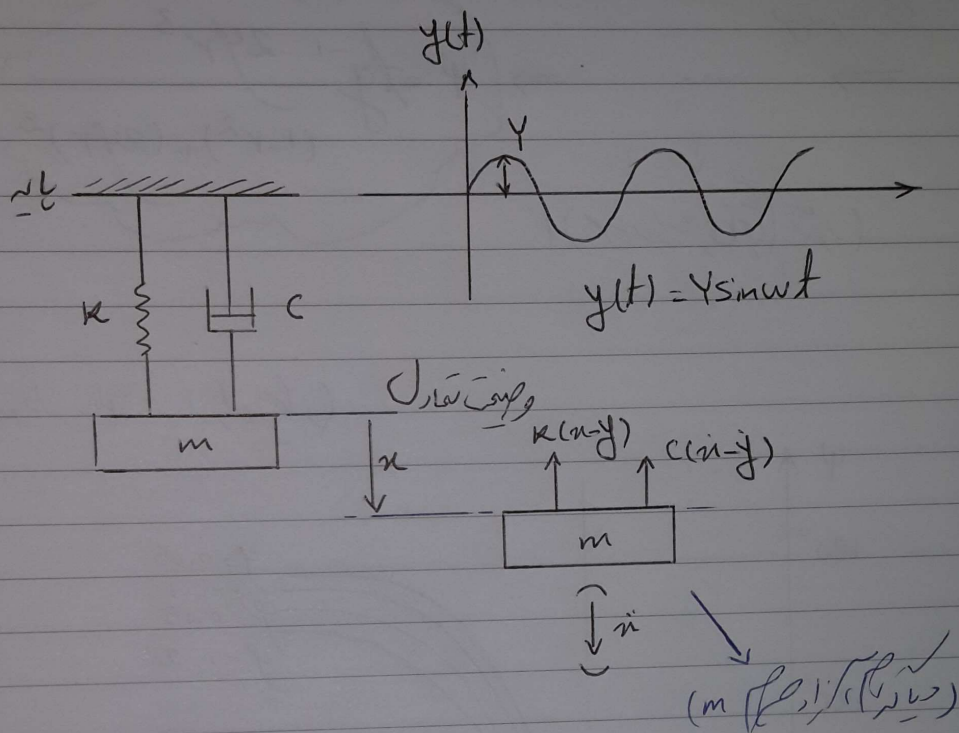 y(t)
Y
پایه
y(t) = Y sin ωt
K
C
وضعیت تعادل
m
x
K(x-ẏ)
C(ẋ-ẏ)
m
ẍ
(دیاگرام آزاد جرم m)